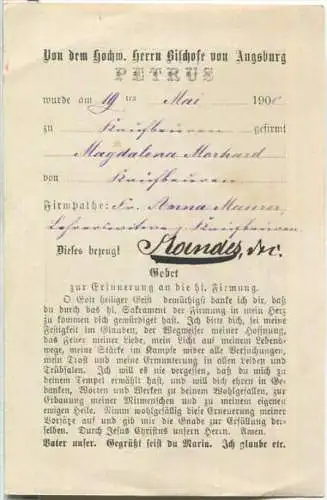 Von dem Hochw. Herrn Bischofe von Augsburg
PETRUS
wurde am 19ten Mai 190
zu Kaufbeuren gefirmt
Magdalena Morhard
von Kaufbeuren
Firmpathe: Fr. Anna Maurer,
Kaufbeuren
Dieses bezeugt
Gebet
zur Erinnerung an die hl. Firmung.
O Gott heiliger Geist demüthigst danke ich dir, daß du
durch das hl. Sakrament der Firmung in mein Herz
zu kommen dich gewürdiget hast. Ich bitte dich, sei meine
Festigkeit im Glauben, der Wegweiser meiner Hoffnung,
das Feuer meiner Liebe, mein Licht auf meinem Lebens-
wege, meine Stärke im Kampfe wider alle Versuchungen,
mein Trost und meine Ermunterung in allen Leiden und
Trübsalen. Ich will es nie vergessen, daß du mich zu
deinem Tempel erwählt hast, und will dich ehren in Ge-
danken, Worten und Werken zu deinem Wohlgefallen, zur
Erbauung meiner Mitmenschen und zu meinem eigenen
ewigen Heile. Nimm wohlgefällig diese Erneuerung meiner
Vorsätze auf und gib mir die Gnade zur Erfüllung der-
selben. Durch Jesus Christus unsern Herrn. Amen.
Vater unser. Gegrüßt seist du Maria. Ich glaube etc.